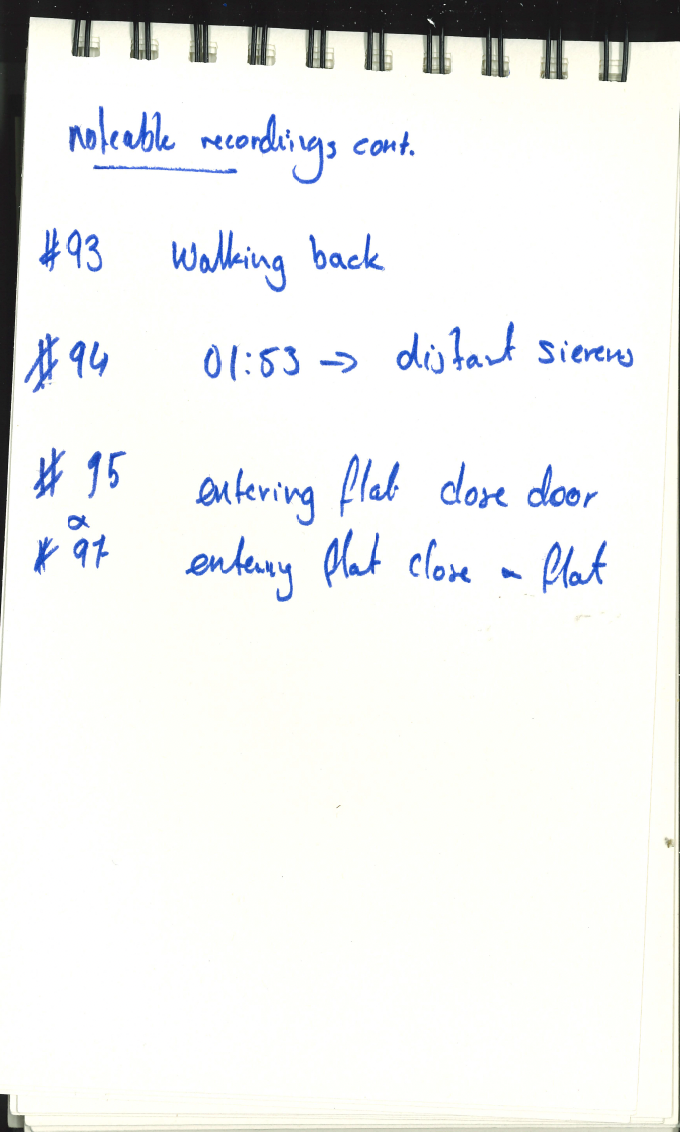 noteable recordings cont.
#93 Walking back
#94 01:53 → distant sierens
#95 entering flat close door
&
#97 entering flat close - flat